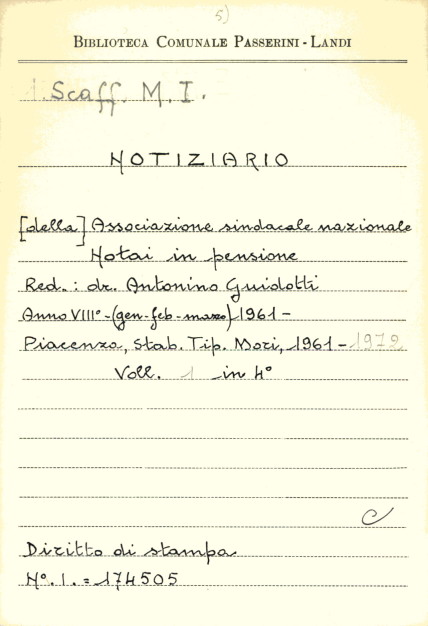 5)
BIBLIOTECA COMUNALE PASSERINI - LANDI
1. Scaff. M. I.
NOTIZIARIO
[della] Associazione sindacale nazionale
Notai in pensione
Red. : dr. Antonino Guidotti
Anno VIII° - (gen-feb-marzo) 1961 -
Piacenza, Stab. Tip. Mori, 1961 - 1972
Voll. 1 in 4°
C
Diritto di stampa
N°. I. = 174505